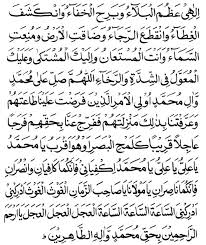 اِلٰهِي عَظُمَ الْبَلَآءُ وَبَرِحَ الْخَفَآءُ وَانْكَشَفَ
الْغِطَآءُ وَانْقَطَعَ الرَّجَآءُ وَضَاقَتِ الْاَرْضُ وَمُنِعَتِ
السَّمَآءُ وَاَنْتَ الْمُسْتَعَانُ وَاِلَيْكَ الْمُشْتَكٰى وَعَلَيْكَ
الْمُعَوَّلُ فِي الشِّدَّةِ وَالرَّخَآءِ اَللّٰهُمَّ صَلِّ عَلٰى مُحَمَّدٍ
وَاٰلِ مُحَمَّدٍ اُولِي الْاَمْرِ الَّذِيْنَ فَرَضْتَ عَلَيْنَا طَاعَتَهُمْ
وَعَرَّفْتَنَا بِذٰلِكَ مَنْزِلَتَهُمْ فَفَرِّجْ عَنَّا بِحَقِّهِمْ فَرَجًا
عَاجِلًا قَرِيْبًا كَلَمْحِ الْبَصَرِ اَوْ هُوَ اَقْرَبُ يَا مُحَمَّدُ
يَا عَلِيُّ يَا عَلِيُّ يَا مُحَمَّدُ اِكْفِيَانِي فَاِنَّكُمَا كَافِيَانِ وَانْصُرَانِي
فَاِنَّكُمَا نَاصِرَانِ يَا مَوْلَانَا يَا صَاحِبَ الزَّمَانِ الْغَوْثَ الْغَوْثَ الْغَوْثَ اَدْرِكْنِي
اَدْرِكْنِي اَدْرِكْنِي السَّاعَةَ السَّاعَةَ السَّاعَةَ الْعَجَلَ الْعَجَلَ الْعَجَلَ يَا اَرْحَمَ
الرَّاحِمِيْنَ بِحَقِّ مُحَمَّدٍ وَاٰلِهِ الطَّاهِرِيْنَ